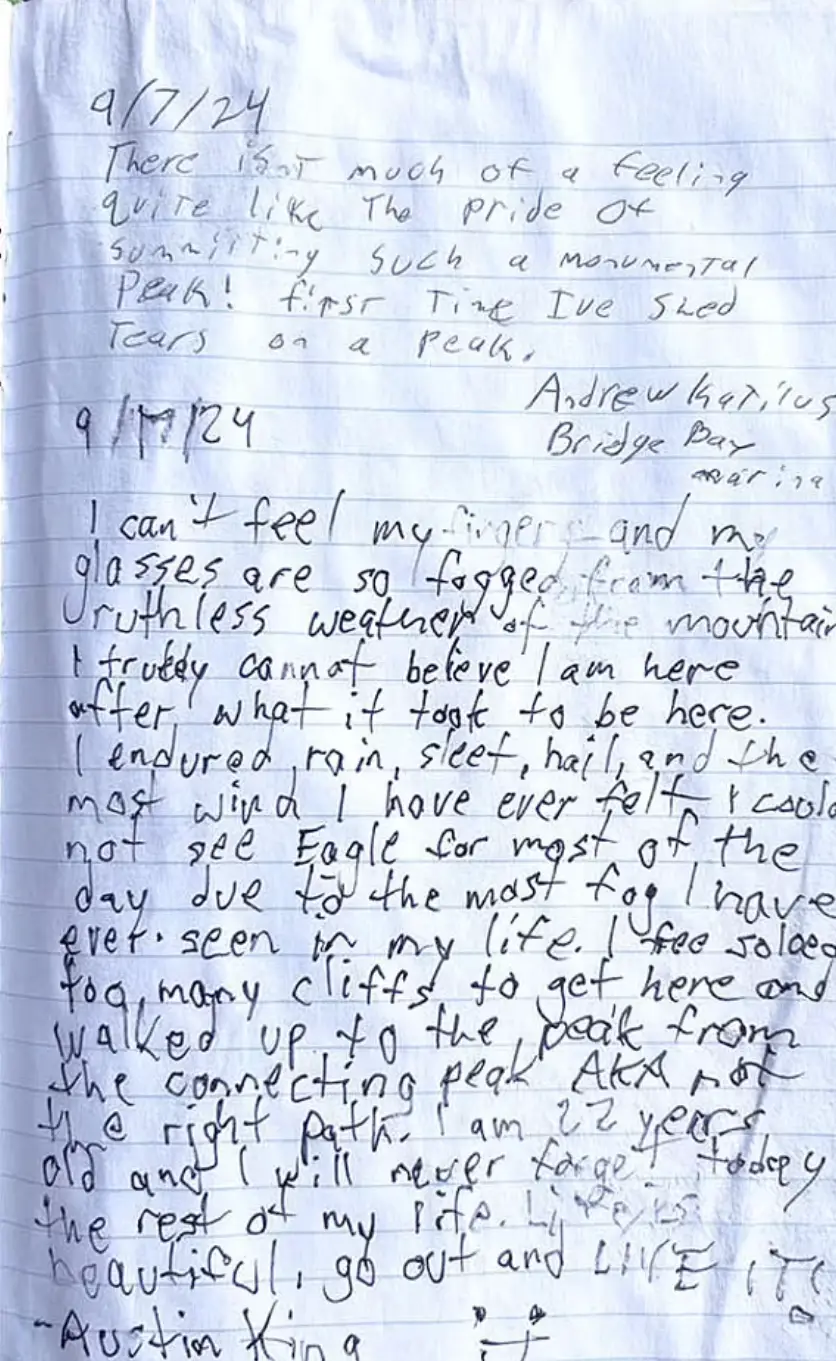 9/7/24
There isnt much of a feeling
quite like The pride of
summitting such a monumental
Peak! first Time Ive shed
Tears on a peak.
Andrew
Bridge Bay
marina
9/17/24
I can't feel my fingers and my
glasses are so fogged from the
ruthless weather of the mountain
I truely cannot beleve I am here
after what it took to be here.
I endured rain, sleet, hail, and the
most wind I have ever felt I could
not see Eagle for most of the
day due to the most fog I have
ever seen in my life. I free soloed
too many cliffs to get here and
walked up to the peak from
the connecting peak AKA not
the right path. I am 22 years
old and I will never forget today
the rest of my life. Life is
beautiful, go out and LIVE IT!
-Austin King